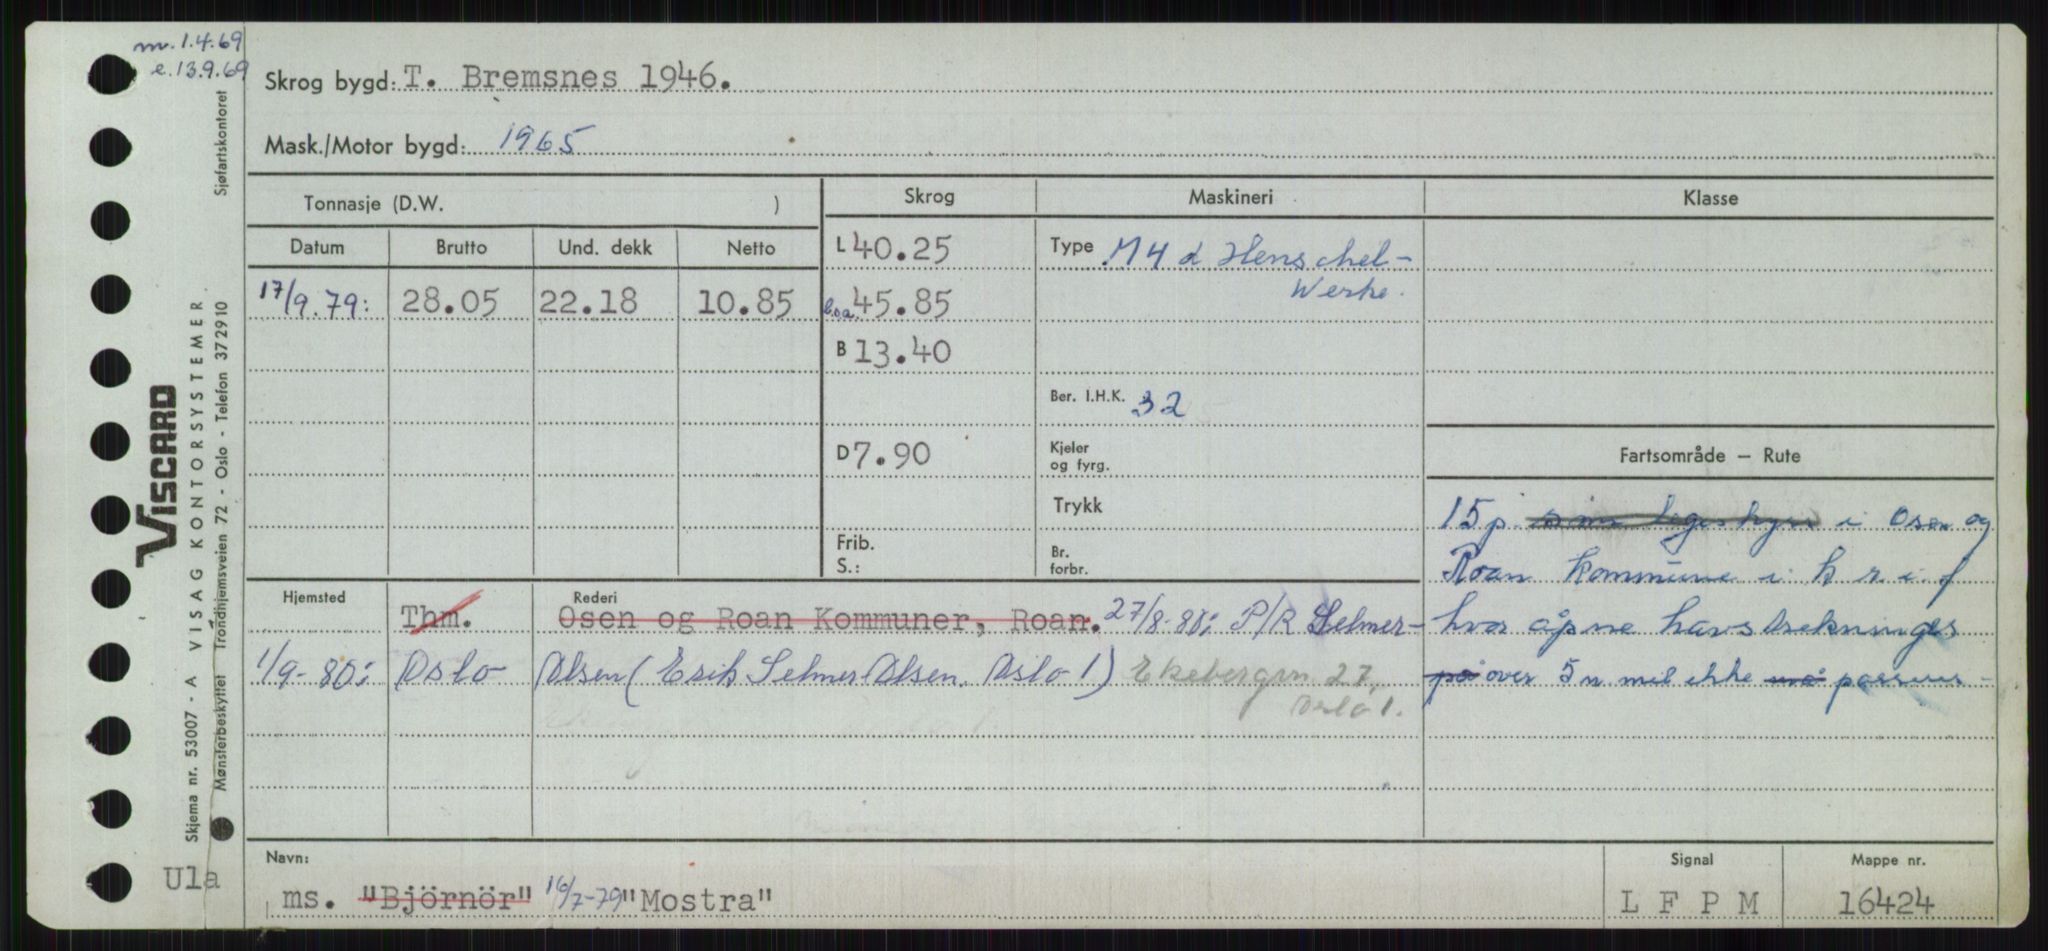 m. 1.4.69
e. 13.9.69
Skrog bygd: T. Bremsnes 1946.
Mask./Motor bygd: 1965
Tonnasje (D.W. )
Skrog
Maskineri
Klasse
Datum Brutto Und. dekk Netto
17/9.79: 28.05 22.18 10.85
L 40.25
l.o.a. 45.85
B 13.40
D 7.90
Frib.
S.:
Type M 4 d Henschel-
Werke.
Ber. I.H.K. 32
Kjeler
og fyrg.
Trykk
Br.
forbr.
Fartsområde — Rute
15 p. i Osen og
Roan kommune i h r i f
hvor åpne havstrekninger
på over 5 n mil ikke må passeres
Hjemsted
Thm.
1/9-80: Oslo
Rederi
Osen og Roan Kommuner, Roan. 27/8-80: P/R Selmer-
Olsen (Erik Selmer Olsen, Oslo 1) Ekebergvn 27,
Oslo 1.
Navn:
ms. "Björnör" 16/7-79 "Mostra"
Signal
L F P M
Mappe nr.
16424
Ula
VISCARD
Skjema nr. 53007 - A VISAG KONTORSYSTEMER
Mønsterbeskyttet Trondhjemsveien 72 - Oslo - Telefon 372910
Sjøfartskontoret